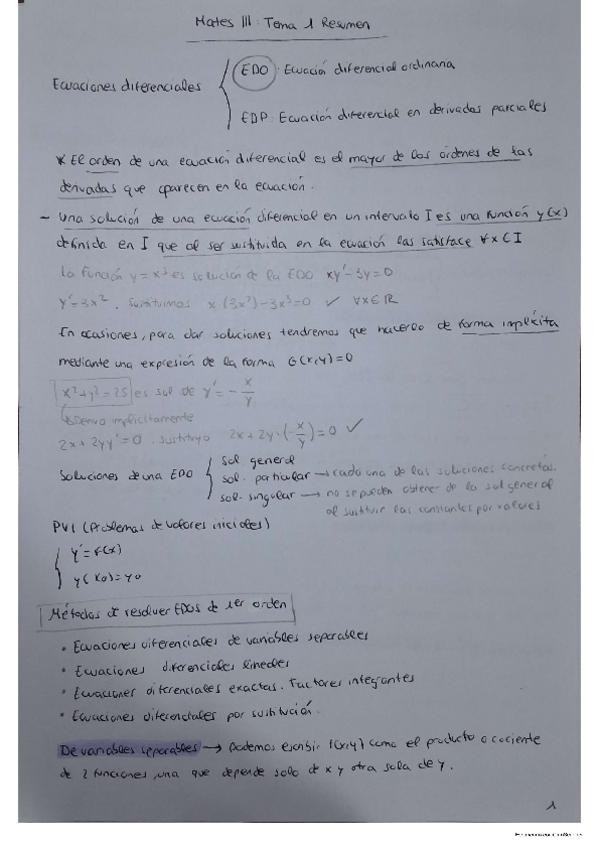 Mates III: Tema 1 Resumen
Ecuaciones diferenciales
EDO: Ecuación diferencial ordinaria
EDP: Ecuación diferencial en derivadas parciales
* El orden de una ecuación diferencial es el mayor de los órdenes de las
derivadas que aparecen en la ecuación.
- Una solución de una ecuación diferencial en un intervalo I es una función y(x)
definida en I que al ser sustituida en la ecuación las satisface ∀x∈I
La función y = x³ es solución de la EDO xy'-3y=0
y'=3x². Sustituimos x(3x²)-3x³=0 ✓ ∀x∈ℝ
En ocasiones, para dar soluciones tendremos que hacerlo de forma implícita
mediante una expresión de la forma G(x,y)=0
x²+y²=25 es sol de y' = -x/y
↳ Derivo implícitamente
2x+2yy'=0. sustituyo 2x+2y·(-x/y)=0 ✓
Soluciones de una EDO
sol general
sol. particular → cada una de las soluciones concretas.
sol. singular → no se pueden obtener de la sol general
al sustituir las constantes por valores
PVI (Problemas de valores iniciales)
y'=f(x)
y(x0)=y0
Métodos de resolver EDOS de 1er orden
• Ecuaciones diferenciales de variables separables
• Ecuaciones diferenciales lineales
• Ecuaciones diferenciales exactas. Factores integrantes
• Ecuaciones diferenciales por sustitución.
De variables separables → Podemos escribir f(x,y) como el producto o cociente
de 2 funciones, una que depende solo de x y otra sola de y.
1